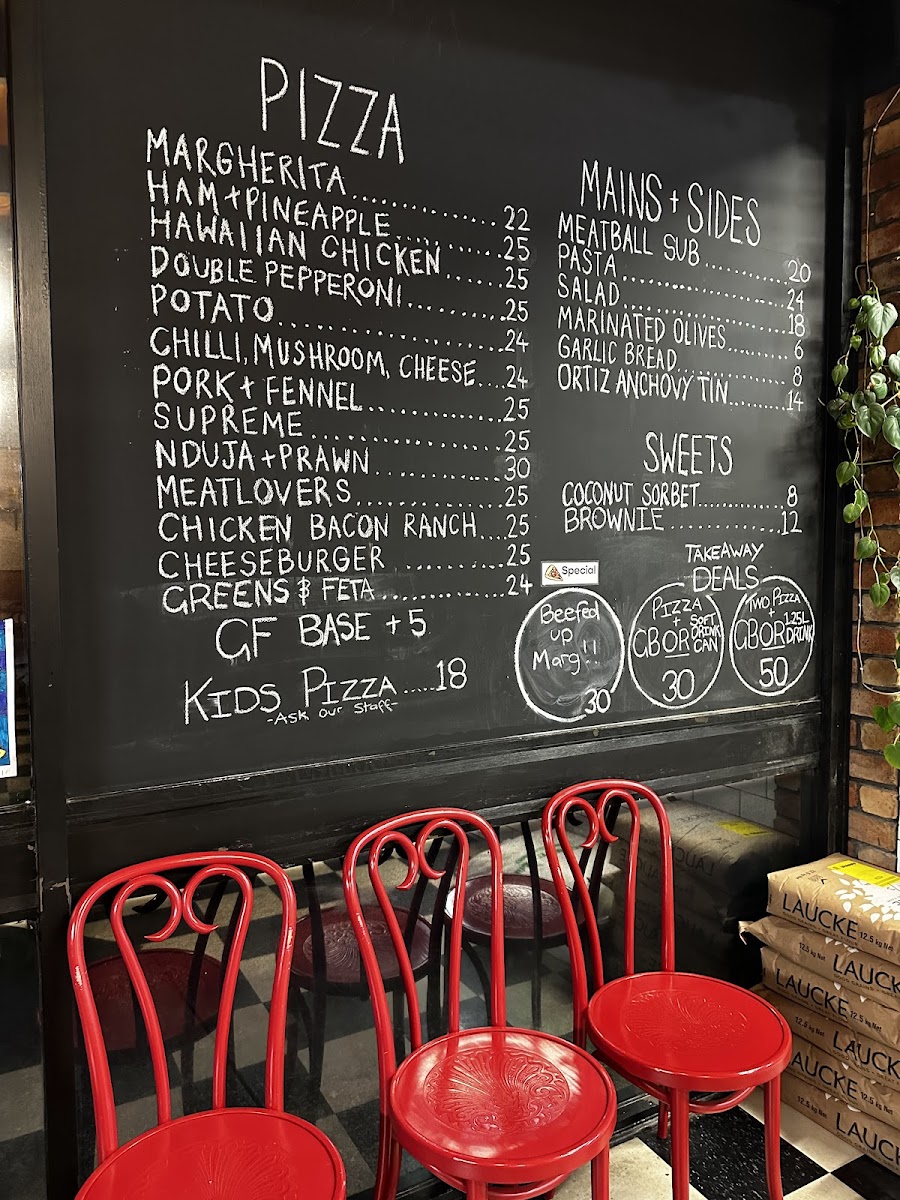 PIZZA
MARGHERITA..............22
HAM+PINEAPPLE..........25
HAWAIIAN CHICKEN......25
DOUBLE PEPPERONI.........25
POTATO....................24
CHILLI, MUSHROOM, CHEESE....24
PORK + FENNEL.............25
SUPREME..................25
NDUJA+PRAWN............30
MEATLOVERS..............25
CHICKEN BACON RANCH...25
CHEESEBURGER...........25
GREENS & FETA.............24
GF BASE +5
KIDS PIZZA.....18
-ASK OUR STAFF-
MAINS + SIDES
MEATBALL SUB.........20
PASTA.................24
SALAD.................18
MARINATED OLIVES........6
GARLIC BREAD............8
ORTIZ ANCHOVY TIN........14
SWEETS
COCONUT SORBET.........8
BROWNIE..............12
Special
Beefed
up
Marg!!
30
TAKEAWAY
DEALS
PIZZA
+
GB OR SOFT DRINK CAN
30
TWO PIZZA
GB OR 1.25L DRINK
50
LAUCKE
12.5 kg Net
LAUCKE
12.5 kg Net
LAUCKE
12.5 kg Net
LAUCKE
12.5 kg Net
LAUCKE
12.5 kg Net
LAUCKE